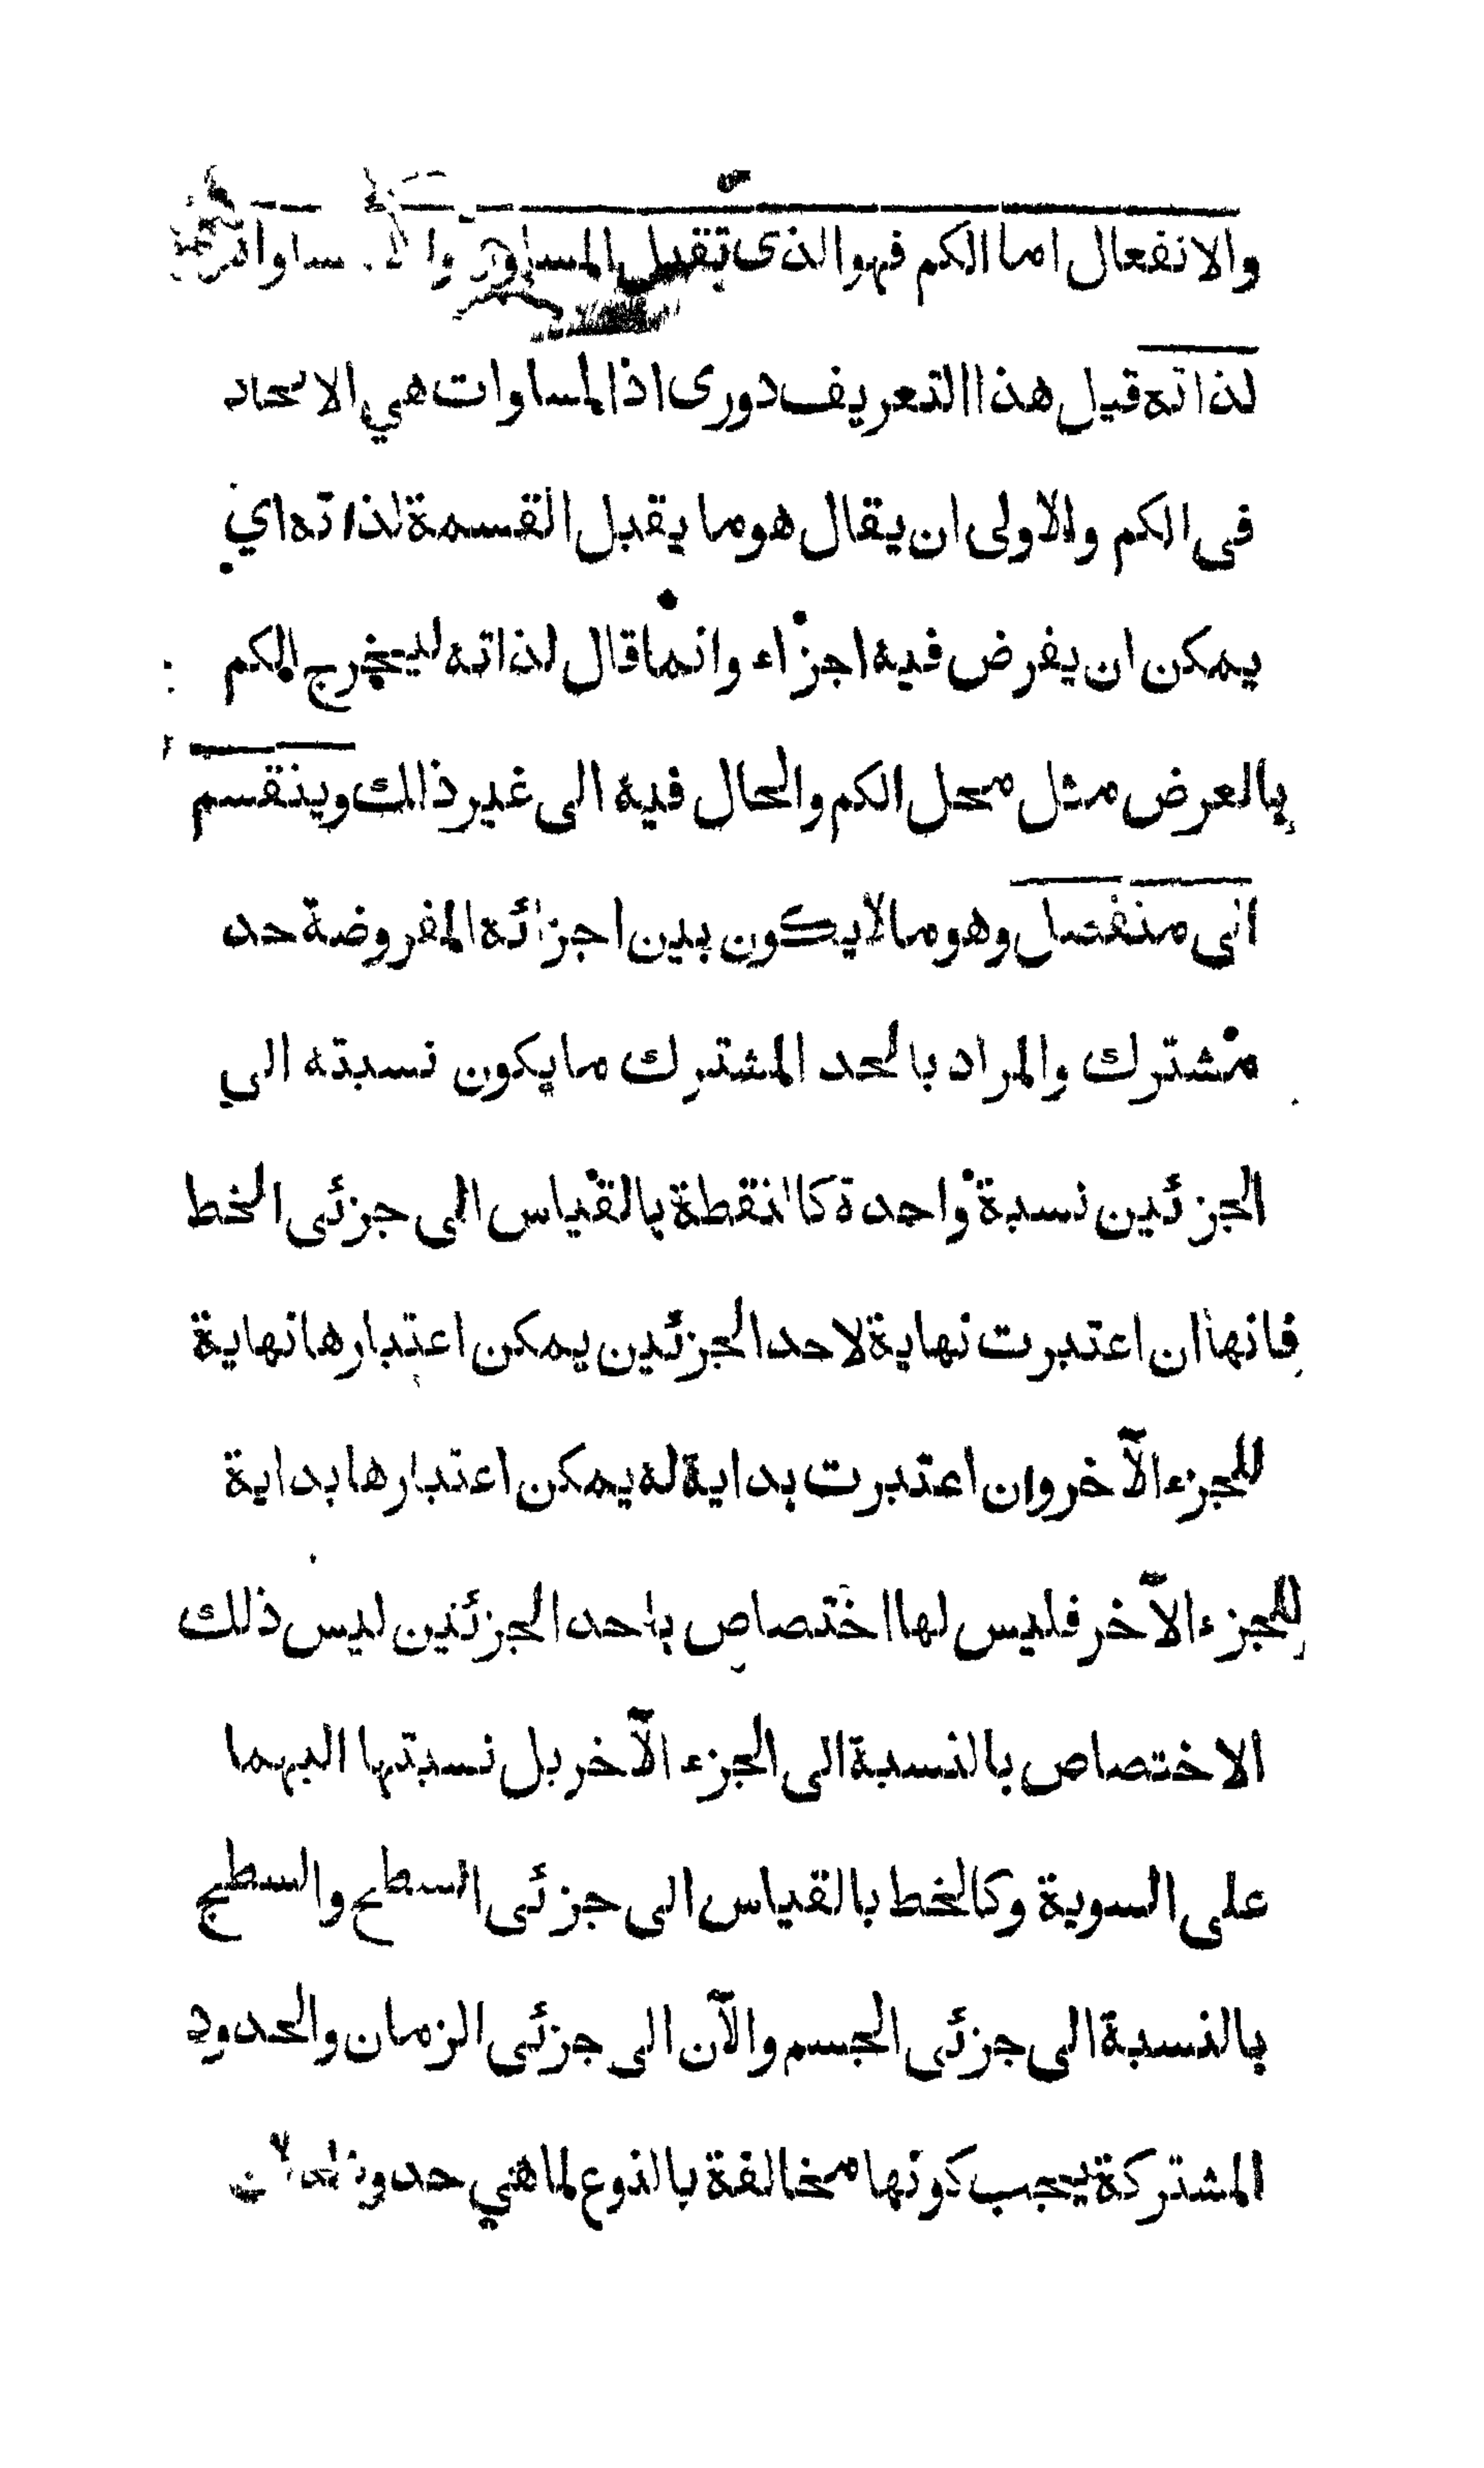 والانفعال اما الكم فهو الذى تقبل المساوات
لذاته قيل هذا التعريف دورى اذ المساوات هي الاتحاد
فى الكم والاولى ان يقال هو ما يقبل القسمة لذاته اي
يمكن ان يفرض فيه اجزاء وانما قال لذاته ليخرج الكم
بالعرض مثل محل الكم والحال فيه الى غير ذلك وينقسم
الى منفصل وهو ما لا يكون بين اجزائه المفروضة حد
مشترك والمراد بالحد المشترك ما يكون نسبته الي
الجزئين نسبة واحدة كالنقطة بالقياس الى جزئى الخط
فانها ان اعتبرت نهاية لاحد الجزئين يمكن اعتبارها نهاية
للجزء الآخر وان اعتبرت بداية له يمكن اعتبارها بداية
للجزء الآخر فليس لها اختصاص باحد الجزئين ليس ذلك
الاختصاص بالنسبة الى الجزء الآخر بل نسبتها اليهما
على السوية وكالخط بالقياس الى جزئى السطح والسطح
بالنسبة الى جزئى الجسم والآن الى جزئى الزمان والحدود
المشتركة يجب كونها مخالفة بالنوع لما هي حدود